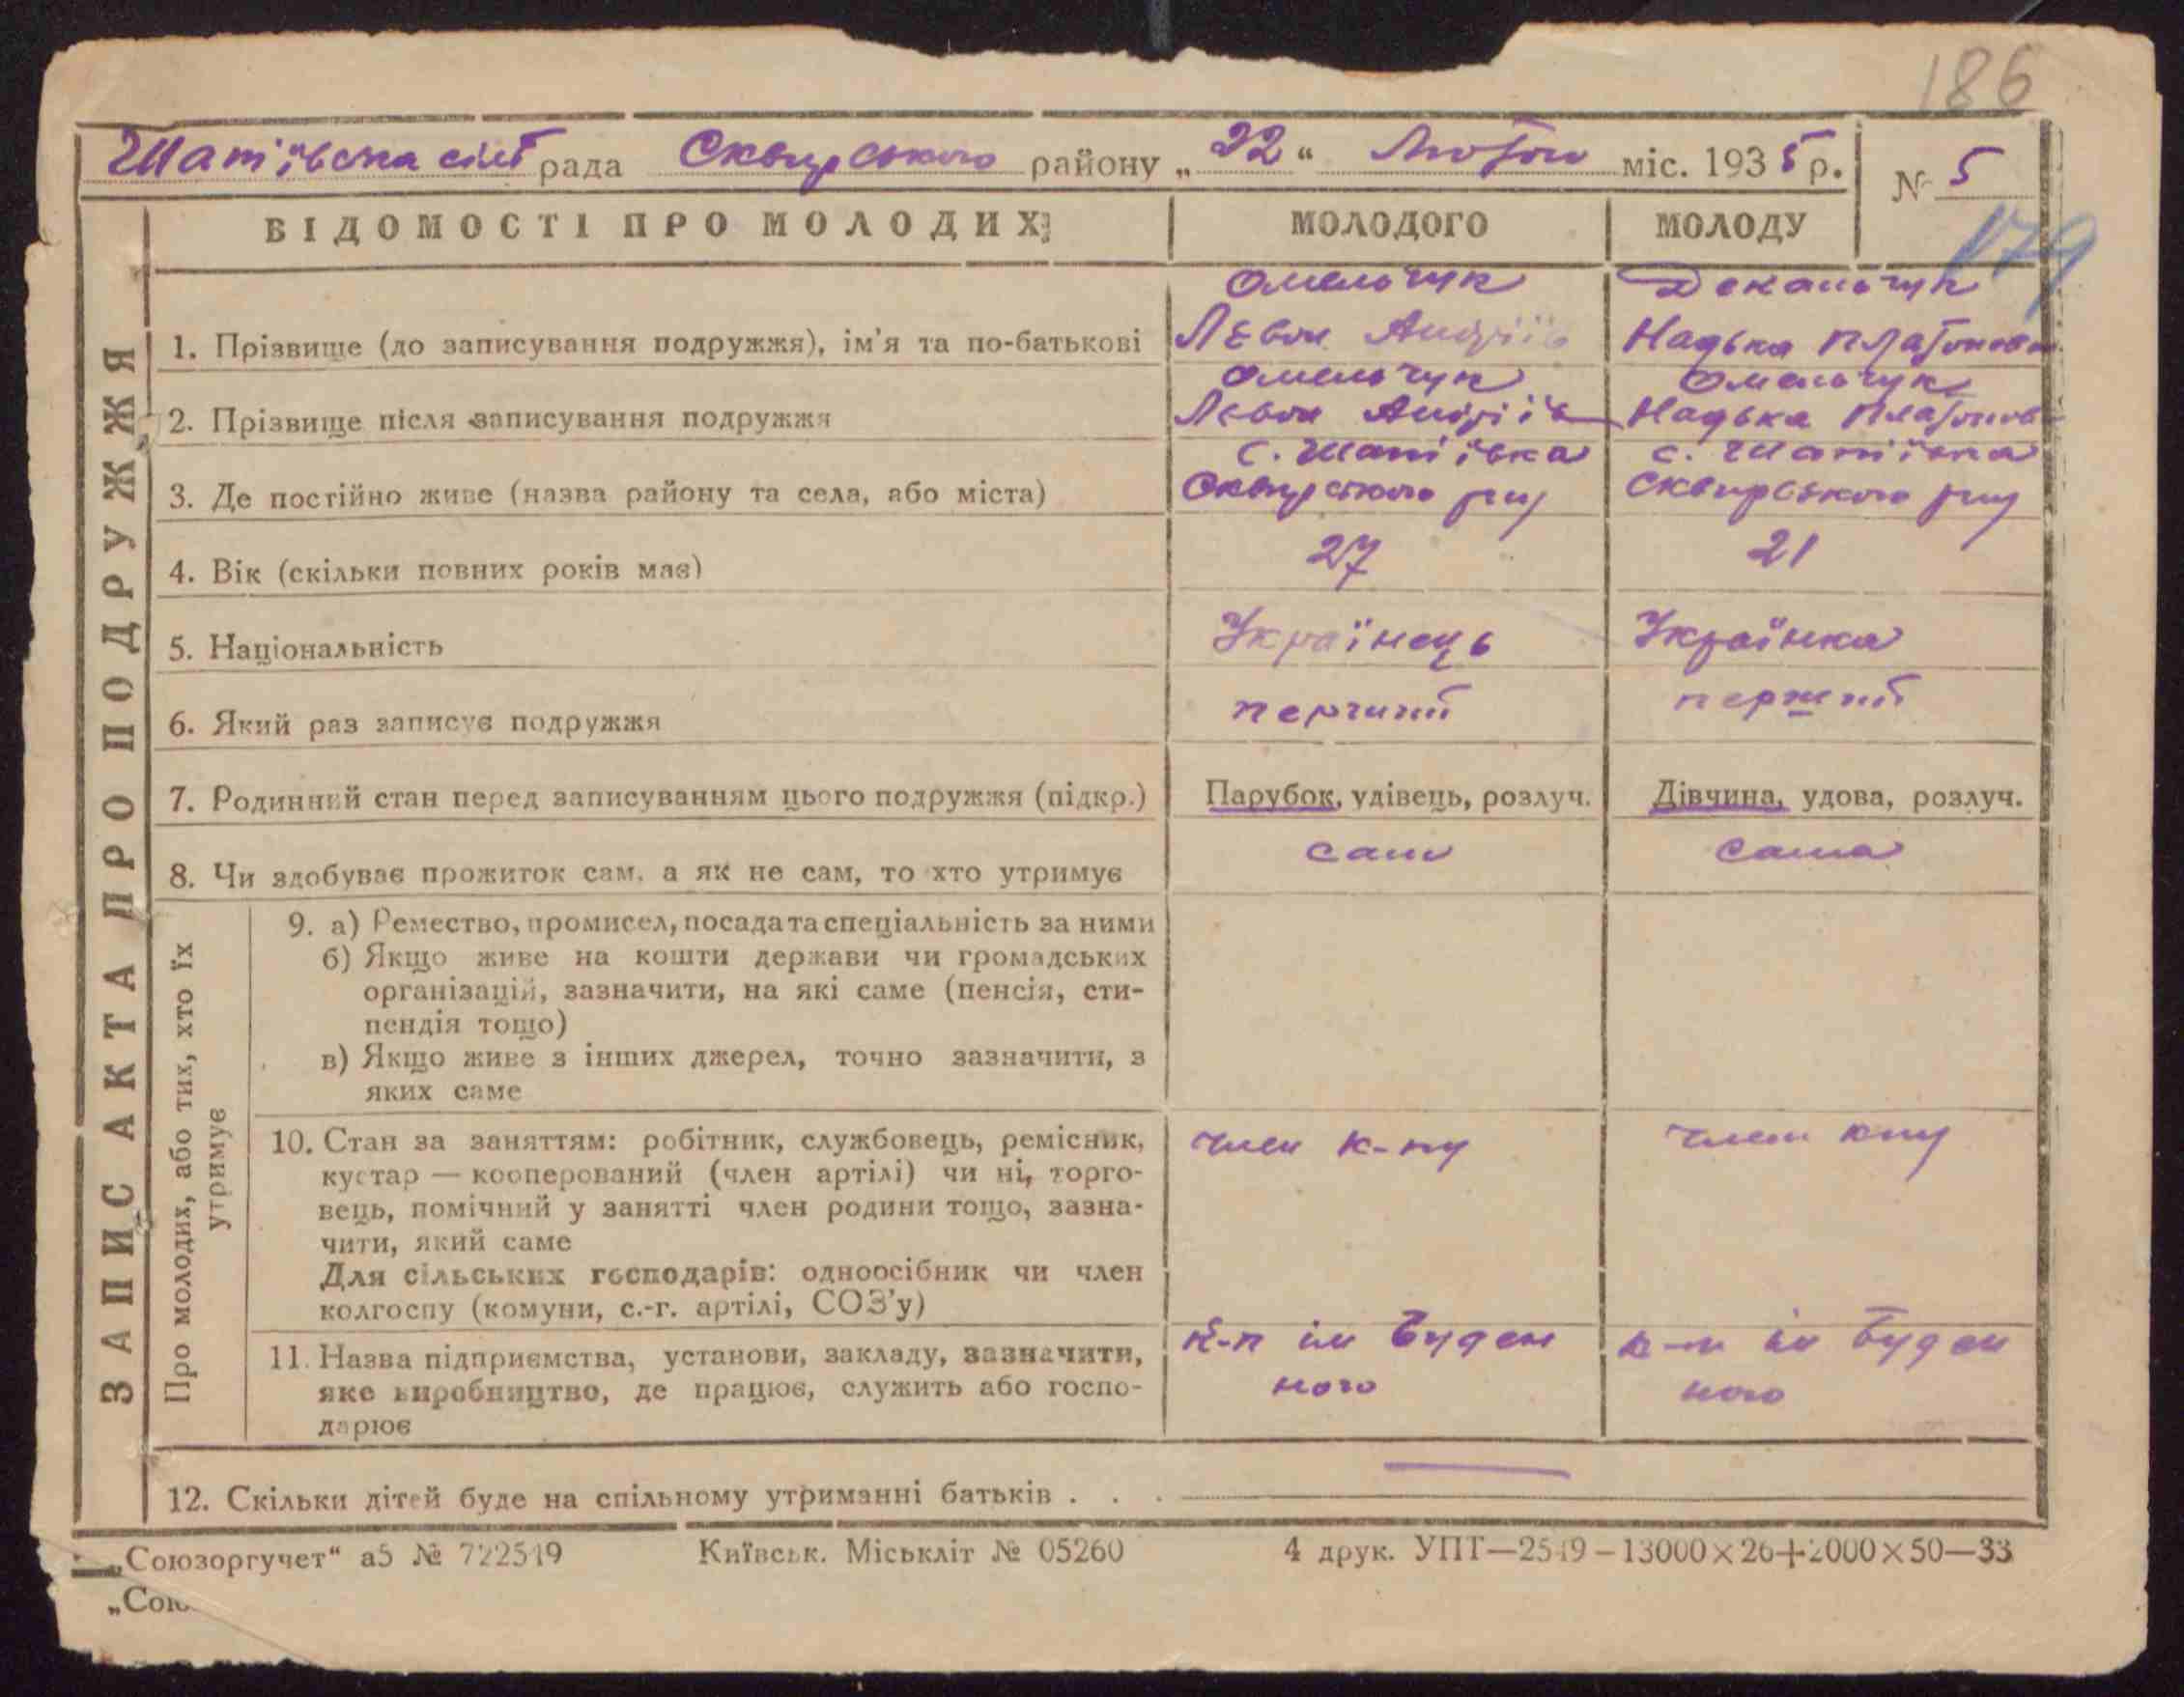 186
Шатіївська сіль рада Сквирського району „22“ Лютого міс. 1935 р. № 5
179
ВІДОМОСТІ ПРО МОЛОДИХ МОЛОДОГО МОЛОДУ
ЗАПИС АКТА ПРО ПОДРУЖЖЯ
Омельчук
1. Прізвище (до записування подружжя), ім'я та по-батькові Лєвон Андріїв Надька Платонов
Омельчук Омельчук
2. Прізвище після записування подружжя Левон Андріїв Надька Платонов
с. Шатіївка с. Шатіївка
3. Де постійно живе (назва району та села, або міста) Сквирського рну Сквирського рну
4. Вік (скільки повних років має) 27 21
5. Національність Українець Українка
6. Який раз записує подружжя перший перший
7. Родинний стан перед записуванням цього подружжя (підкр.) Парубок, удівець, розлуч. Дівчина, удова, розлуч.
8. Чи здобуває прожиток сам, а як не сам, то хто утримує сам сама
Про молодих, або тих, хто їх
утримує
9. а) Ремество, промисел, посада та спеціальність за ними
б) Якщо живе на кошти держави чи громадських
організацій, зазначити, на які саме (пенсія, сти-
пендія тощо)
в) Якщо живе з інших джерел, точно зазначити, з
яких саме
10. Стан за заняттям: робітник, службовець, ремісник, член к-пу член кпу
кустар — кооперований (член артілі) чи ні, торго-
вець, помічний у занятті член родини тощо, зазна-
чити, який саме
Для сільських господарів: одноосібник чи член
колгоспу (комуни, с.-г. артілі, СОЗ'у)
11. Назва підприємства, установи, закладу, зазначити, к-п ім Буден к-п ім Буден
яке виробництво, де працює, служить або госпо- ного ного
дарює
12. Скільки дітей буде на спільному утриманні батьків . . .
„Союзоргучет“ а5 № 722519 Київськ. Міськліт № 05260 4 друк. УПТ—2519—13000×26+2000×50—33
„Сою